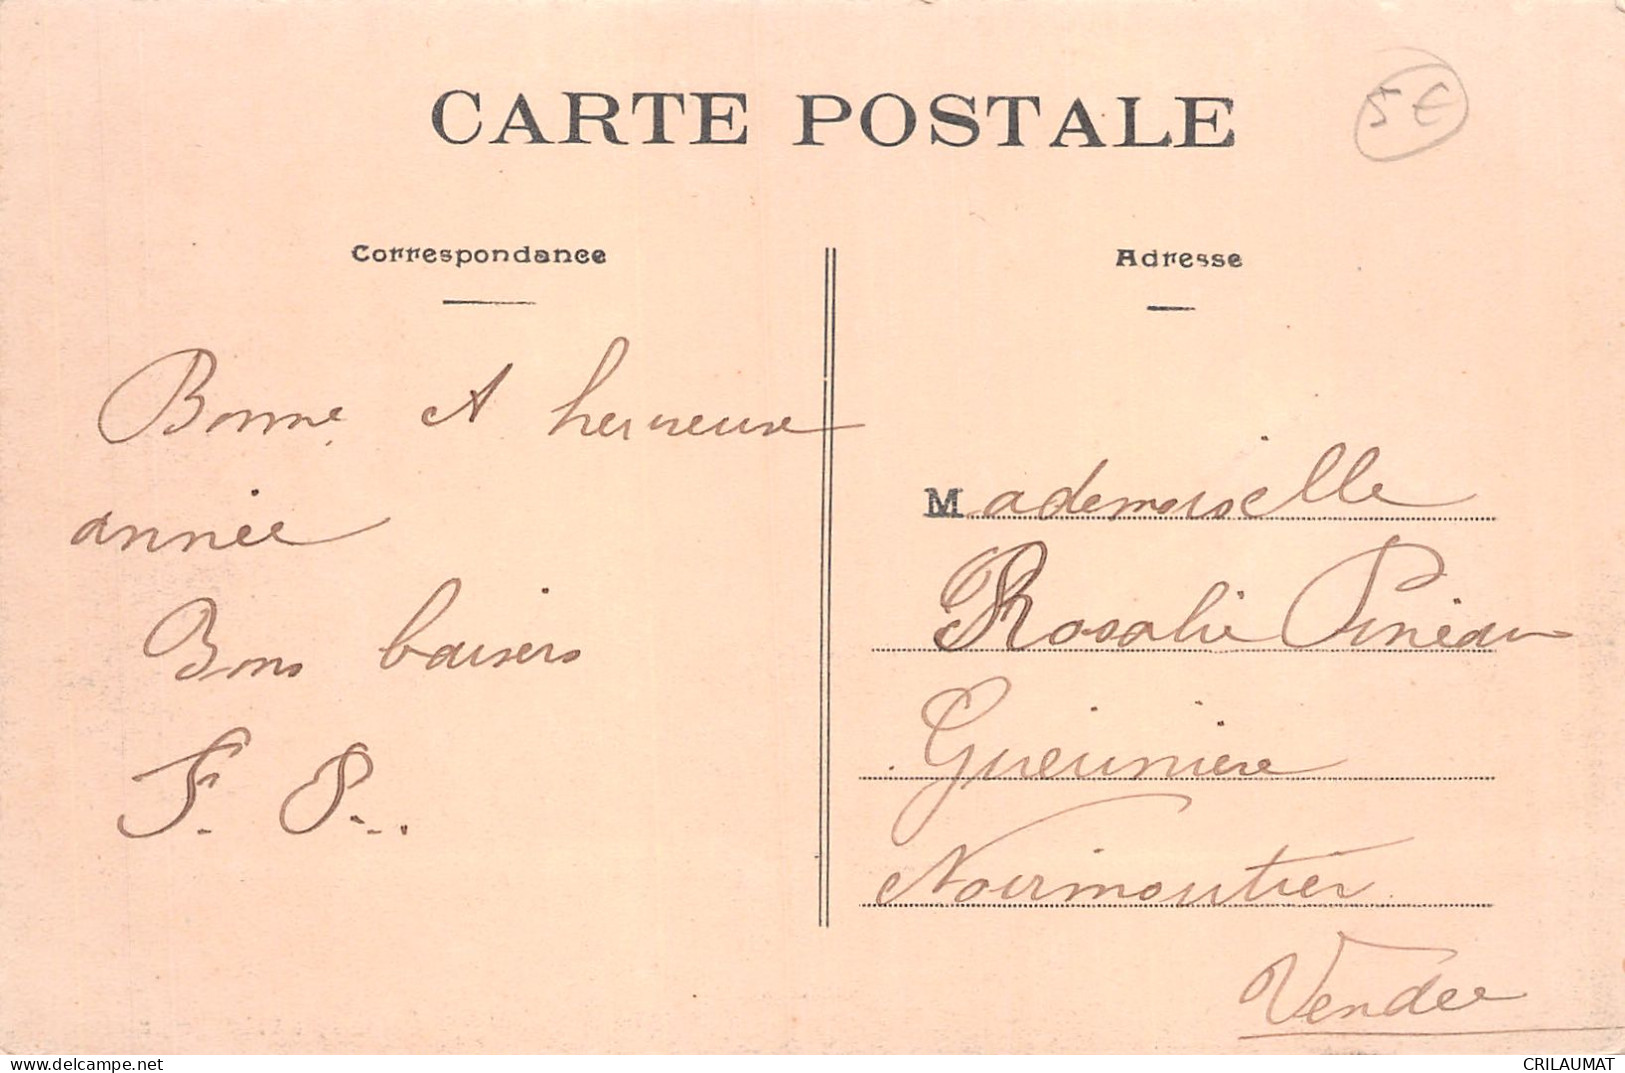 CARTE POSTALE
5€
Correspondance
Adresse
Bonne et heureuse
année
Bons baisers
F. P...
Mademoiselle
Rosalie Pineau
Gueurinière
Noirmoutier
Vendee
www.delcampe.net
CRILAUMAT